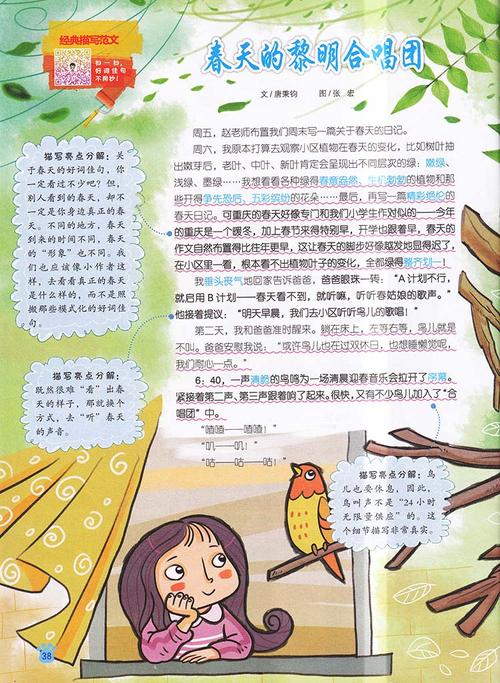 经典描写范文
扫一扫，
好词佳句
不用抄！
春天的黎明合唱团
文/唐秉钧 图/张 宏
周五，赵老师布置我们周末写一篇关于春天的日记。
周六，我原本打算去观察小区植物在春天的变化，比如树叶抽
出嫩芽后，老叶、中叶、新叶肯定会呈现出不同层次的绿：嫩绿、
浅绿、墨绿……我想看看各种绿得春意盎然、生机勃勃的植物和那
些开得争先恐后、五彩缤纷的花朵……最后，再写一篇精彩绝伦的
春天日记。可重庆的春天好像专门和我们小学生作对似的——今年
的重庆是一个暖冬，加上春节来得特别早，开学也跟着早，春天的
作文自然布置得比往年更早，这让春天的脚步好像越发地显得迟了，
在小区里一看，根本看不出植物叶子的变化，全都绿得整齐划一！
我垂头丧气地回家告诉爸爸，爸爸眼珠一转：“A计划不行，
就启用B计划——春天看不到，就听嘛，听听春姑娘的歌声。”
他接着提议：“明天早晨，我们去小区听听鸟儿的歌唱！”
第二天，我和爸爸准时醒来。躺在床上，左等右等，鸟儿就是
不叫。爸爸安慰我说：“或许鸟儿也在过双休日，也想睡懒觉呢，
我们耐心一点。”
6：40，一声清脆的鸟鸣为一场清晨迎春音乐会拉开了序幕。
紧接着第二声、第三声跟着响了起来。很快，又有不少鸟儿加入了“合
唱团”中。
“喳喳——喳喳！”
“叽——叽！”
“咕——咕——咕！”
描写亮点分解：关
于春天的好词佳句，你
一定看过不少吧？但，
别人看到的春天，却不
一定是你身边真正的春
天。不同的地方，春天
到来的时间不同，春天
的“形象”也不同。我
们也应该像小作者这
样，去看看真正的春天
是什么样的，而不是照
搬那些模式化的好词佳
句。
描写亮点分解：
既然很难“看”出春
天的样子，那就换个
方式，去“听”春天
的声音。
描写亮点分解：鸟
儿也要休息，因此，
鸟叫声不是“24小时
无限量供应”的。这
个细节描写非常真实。
38